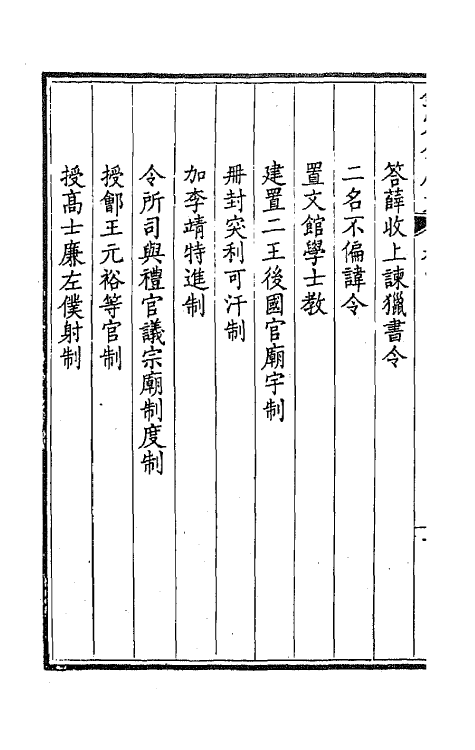 答薛收上諫獵書令
二名不偏諱令
置文館學士教
建置二王後國官廟宇制
冊封突利可汗制
加李靖特進制
令所司與禮官議宗廟制度制
授鄶王元裕等官制
授髙士廉左僕射制